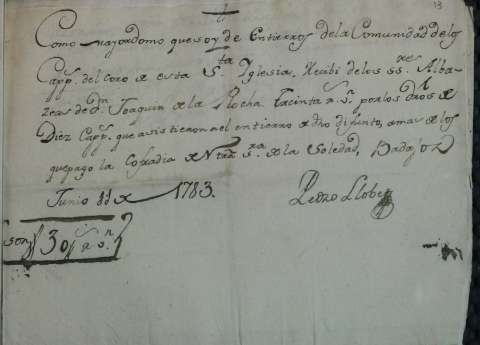 13
Como mayordomo que soy de Entierros de la Comunidad de los
Capp.s del Coro de esta S.ta Iglesia, Recibi de los SS.res Alba-
zeas de D.n Joaquin de la Rocha treinta r.s v.n por los dros de
Diez Capp.s que asistieron en el entierro de dho difunto, a mas de los
que pago la Cofradia de Ntra S.ra de la Soledad, Badajoz
Junio 11 de 1783.
Pedro Llobet
son 30 r.s v.n